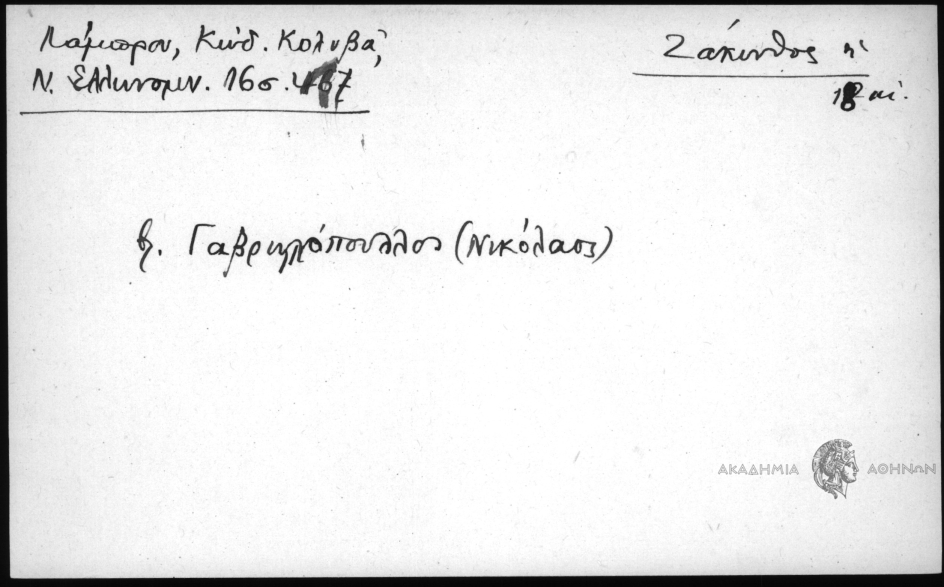 Λάμπρου, Κώδ. Κολυβᾶ,
Ν. Ἑλληνομν. 16 σ. 467
Ζάκυνθος
18 αἰ.
βλ. Γαβριηλόπουλλος (Νικόλαος)
ΑΚΑΔΗΜΙΑ ΑΘΗΝΩΝ